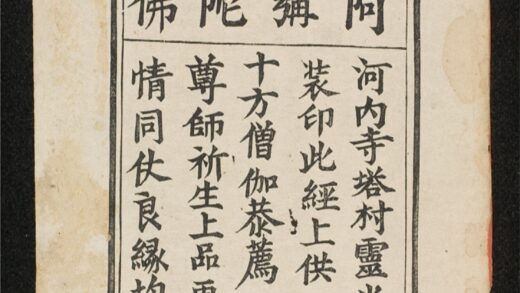 阿彌陀佛
河内寺塔村靈
装印此經上供
十方僧伽恭薦
尊師祈生上品
情同仗良縁